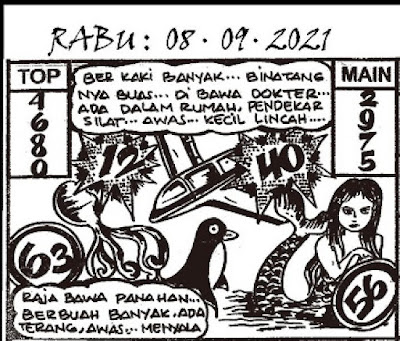 RABU : 08 · 09 · 2021
TOP
4
6
8
0
BER KAKI BANYAK... BINATANG
NYA BUAS... DI BAWA DOKTER...
ADA DALAM RUMAH, PENDEKAR
SILAT... AWAS... KECIL LINCAH....
MAIN
2
9
7
5
12
40
63
56
RAJA BAWA PANAHAN...
BERBUAH BANYAK, ADA
TERANG, AWAS... MENYALA